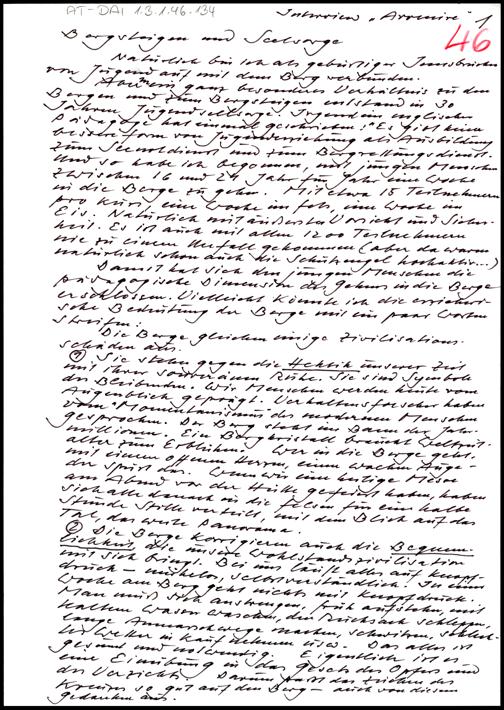 AT-DAI 1.3.1.46.134
Interview „Avvenire" 1
46
Bergsteigen und Seelsorge
Natürlich bin ich als gebürtiger Innsbrucker
von Jugend auf mit dem Berg verbunden.
Aber ein ganz besonderes Verhältnis zu den
Bergen und zum Bergsteigen entstand in 30
Jahren Jugendseelsorge. Irgendein englischer
Pädagoge hat einmal geschrieben: "Es gibt keine
bessere Form von Jugenderziehung als Ausbildung
zum Seenotdienst und zum Bergrettungsdienst.
Und so habe ich begonnen, mit jungen Menschen
zwischen 16 und 24 Jahr für Jahr eine Woche
in die Berge zu gehn. Mit etwa 15 Teilnehmern
pro Kurs, eine Woche im Fels, eine Woche im
Eis. Natürlich mit äußerster Vorsicht und Sicher-
heit. Es ist auch mit allen 1200 Teilnehmern
nie zu einem Unfall gekommen (aber da waren
natürlich schon auch die Schutzengel hochaktiv...)
Damit hat sich den jungen Menschen die
pädagogische Dimension des Gehens in die Berge
erschlossen. Vielleicht könnte ich die erzieheri-
sche Bedeutung der Berge mit ein paar Worten
streifen:
Die Berge gleichen einige Zivilisations-
schäden aus.
① Sie stehen gegen die Hektik unserer Zeit
mit ihrer souveränen Ruhe. Sie sind Symbole
des Bleibenden. Wir Menschen werden heute vom
Augenblick geprägt. Verhaltensforscher haben
vom "Momentanismus des modernen Menschen
gesprochen. Der Berg steht im Bann der Jahr-
millionen. Ein Bergkristall braucht Weltzeit-
alter zum Erblühen. Wer in die Berge geht,
mit einem offenen Herzen, einem wachen Auge -
der spürt das. Wenn wir eine heilige Messe
am Abend vor der Hütte gefeiert haben, haben
sich alle danach in die Felsen für eine halbe
Stunde Stille verteilt, mit dem Blick auf das
Tal, das weite Panorama.
② Die Berge korrigieren auch die Bequem-
lichkeit, die unsere Wohlstandszivilisation
mit sich bringt. Bei uns läuft alles auf Knopf-
druck – mühelos, selbstverständlich. In einer
Woche am Berg geht nichts mit Knopfdruck.
Man muß sich anstrengen, früh aufstehn, mit
kaltem Wasser waschen, den Rucksack schleppen,
lange Anmarschwege machen, schwitzen, schlech-
tes Wetter in Kauf nehmen usw. Das alles ist
gesund und notwendig. Eigentlich ist es
eine Einübung in das Gesetz des Opfers und
des Verzichts. Darum paßt das Zeichen des
Kreuzes so gut auf den Berg – auch von diesem
Gedanken aus.